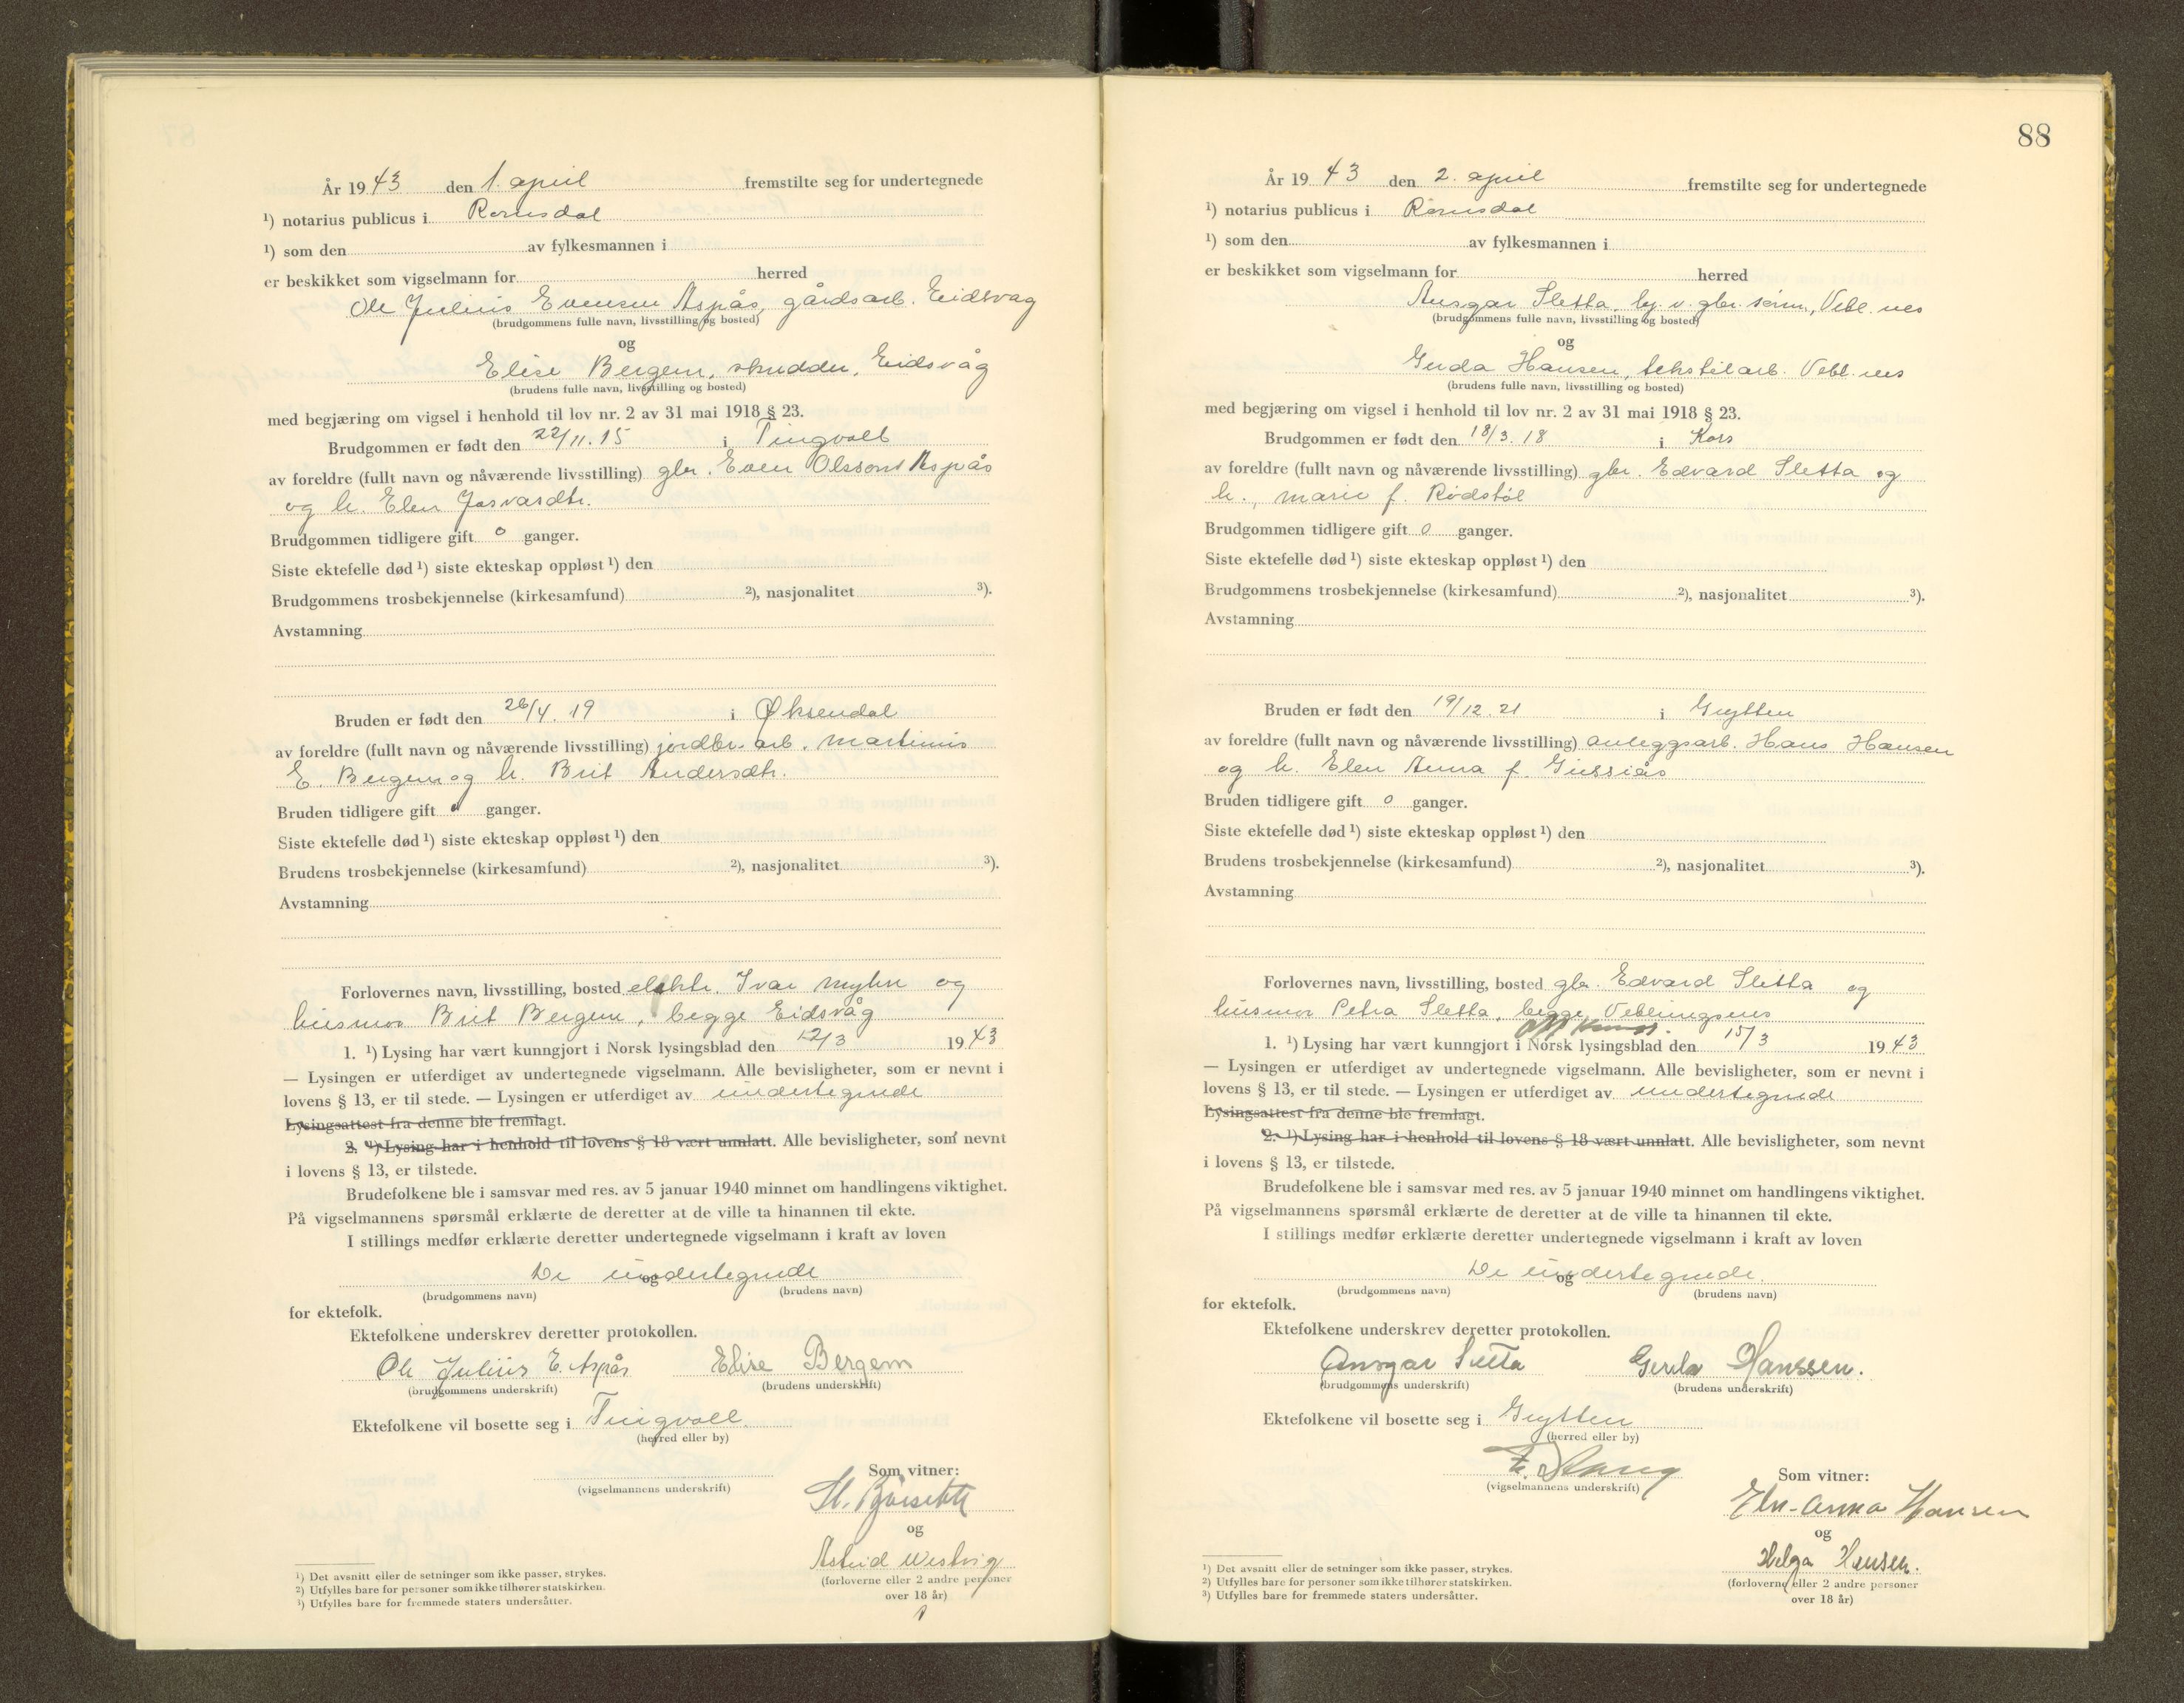 År 1943 den 1. april fremstilte seg for undertegnede
¹) notarius publicus i Romsdal
¹) som den av fylkesmannen i
er beskikket som vigselmann for herred
Ole Julius Evensen Aspås, gårdsarb. Eidsvåg
(brudgommens fulle navn, livsstilling og bosted)
og
Elise Bergem, skredder, Eidsvåg
(brudens fulle navn, livsstilling og bosted)
med begjæring om vigsel i henhold til lov nr. 2 av 31 mai 1918 § 23.
Brudgommen er født den 22/11. 15 i Tingvoll
av foreldre (fullt navn og nåværende livsstilling) gbr. Even Olsson Aspås
og h. Elen
Brudgommen tidligere gift 0 ganger.
Siste ektefelle død ¹) siste ekteskap oppløst ¹) den
Brudgommens trosbekjennelse (kirkesamfund) ²), nasjonalitet ³).
Avstamning
Bruden er født den 26/4. 19 i Øksendal
av foreldre (fullt navn og nåværende livsstilling) jordbr. arb. Martinus
E. Bergem og h. Brit Andersdtr.
Bruden tidligere gift 0 ganger.
Siste ektefelle død ¹) siste ekteskap oppløst ¹) den
Brudens trosbekjennelse (kirkesamfund) ²), nasjonalitet ³).
Avstamning
Forlovernes navn, livsstilling, bosted elektr. Ivar Myhre og
husmor Brit Bergem, begge Eidsvåg
1. ¹) Lysing har vært kunngjort i Norsk lysingsblad den 12/3 1943
— Lysingen er utferdiget av undertegnede vigselmann. Alle bevisligheter, som er nevnt i
lovens § 13, er til stede. — Lysingen er utferdiget av undertegnede
Lysingsattest fra denne ble fremlagt.
2. ¹) Lysing har i henhold til lovens § 18 vært unnlatt. Alle bevisligheter, som nevnt
i lovens § 13, er tilstede.
Brudefolkene ble i samsvar med res. av 5 januar 1940 minnet om handlingens viktighet.
På vigselmannens spørsmål erklærte de deretter at de ville ta hinannen til ekte.
I stillings medfør erklærte deretter undertegnede vigselmann i kraft av loven
De undertegnede
og
(brudgommens navn) (brudens navn)
for ektefolk.
Ektefolkene underskrev deretter protokollen.
Ole Julius E. Aspås Elise Bergem
(brudgommens underskrift) (brudens underskrift)
Ektefolkene vil bosette seg i Tingvoll
(herred eller by)
Som vitner:
(vigselmannens underskrift)
og
Astrid
(forloverne eller 2 andre personer
over 18 år)
¹) Det avsnitt eller de setninger som ikke passer, strykes.
²) Utfylles bare for personer som ikke tilhører statskirken.
³) Utfylles bare for fremmede staters undersåtter.
88
År 1943 den 2. april fremstilte seg for undertegnede
¹) notarius publicus i Romsdal
¹) som den av fylkesmannen i
er beskikket som vigselmann for herred
Ansgar Sletta, gbr. sønn, Vebl.nes
(brudgommens fulle navn, livsstilling og bosted)
og
Gerda Hansen, tekstilarb. Vebl.nes
(brudens fulle navn, livsstilling og bosted)
med begjæring om vigsel i henhold til lov nr. 2 av 31 mai 1918 § 23.
Brudgommen er født den 18/3. 18 i Kors
av foreldre (fullt navn og nåværende livsstilling) gbr. Edvard Sletta og
h., Marie f. Rødstøl
Brudgommen tidligere gift 0 ganger.
Siste ektefelle død ¹) siste ekteskap oppløst ¹) den
Brudgommens trosbekjennelse (kirkesamfund) ²), nasjonalitet ³).
Avstamning
Bruden er født den 19/12. 21 i Grytten
av foreldre (fullt navn og nåværende livsstilling) anleggsarb. Hans Hansen
og h. Elen Anna f. Gussiås
Bruden tidligere gift 0 ganger.
Siste ektefelle død ¹) siste ekteskap oppløst ¹) den
Brudens trosbekjennelse (kirkesamfund) ²), nasjonalitet ³).
Avstamning
Forlovernes navn, livsstilling, bosted gbr. Edvard Sletta og
husmor Petra Sletta, begge Veblungsnes
1. ¹) Lysing har vært kunngjort i Norsk lysingsblad den 15/3 1943
— Lysingen er utferdiget av undertegnede vigselmann. Alle bevisligheter, som er nevnt i
lovens § 13, er til stede. — Lysingen er utferdiget av undertegnede
Lysingsattest fra denne ble fremlagt.
2. ¹) Lysing har i henhold til lovens § 18 vært unnlatt. Alle bevisligheter, som nevnt
i lovens § 13, er tilstede.
Brudefolkene ble i samsvar med res. av 5 januar 1940 minnet om handlingens viktighet.
På vigselmannens spørsmål erklærte de deretter at de ville ta hinannen til ekte.
I stillings medfør erklærte deretter undertegnede vigselmann i kraft av loven
De undertegnede.
og
(brudgommens navn) (brudens navn)
for ektefolk.
Ektefolkene underskrev deretter protokollen.
Ansgar Sletta Gerda Hanssen.
(brudgommens underskrift) (brudens underskrift)
Ektefolkene vil bosette seg i Grytten
(herred eller by)
Som vitner:
(vigselmannens underskrift)
Elen-Anna Hansen
og
Helga Hansen.
(forloverne eller 2 andre personer
over 18 år)
¹) Det avsnitt eller de setninger som ikke passer, strykes.
²) Utfylles bare for personer som ikke tilhører statskirken.
³) Utfylles bare for fremmede staters undersåtter.